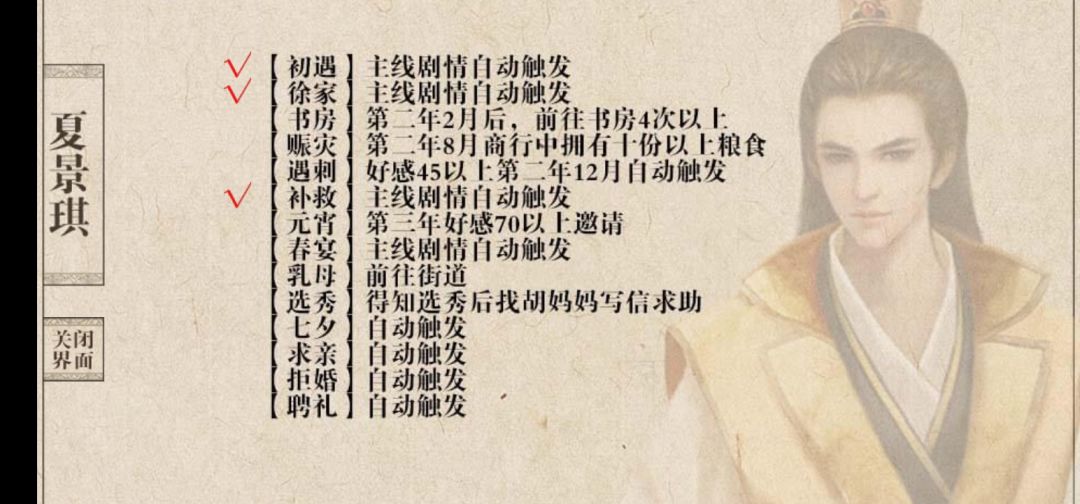 夏景琪
关闭
界面
【初遇】主线剧情自动触发
【徐家】主线剧情自动触发
【书房】第二年2月后，前往书房4次以上
【赈灾】第二年8月商行中拥有十份以上粮食
【遇刺】好感45以上第二年12月自动触发
【补救】主线剧情自动触发
【元宵】第三年好感70以上邀请
【春宴】主线剧情自动触发
【乳母】前往街道
【选秀】得知选秀后找胡妈妈写信求助
【七夕】自动触发
【求亲】自动触发
【拒婚】自动触发
【聘礼】自动触发